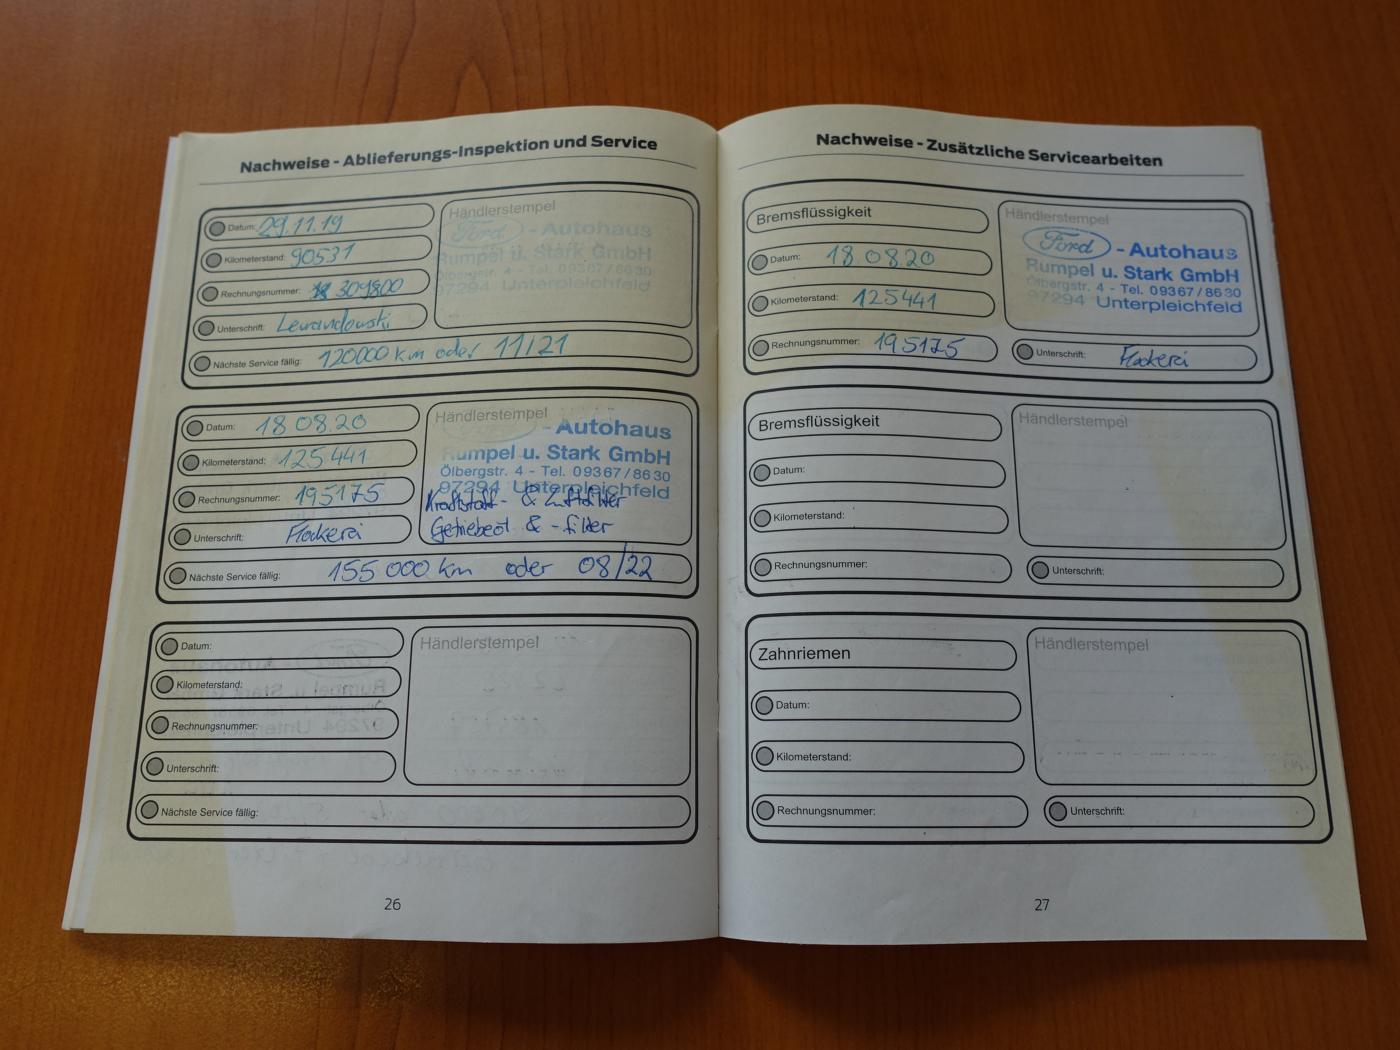 Nachweise - Ablieferungs-Inspektion und Service
Datum: 29.11.19
Kilometerstand: 90531
Rechnungsnummer: 309800
Unterschrift: Lewandowski
Nächste Service fällig: 120000 km oder 11/21
Händlerstempel
Ford - Autohaus
Rumpel u. Stark GmbH
Ölbergstr. 4 - Tel. 09367/8630
97294 Unterpleichfeld
Datum: 18.08.20
Kilometerstand: 125441
Rechnungsnummer: 195175
Unterschrift:
Nächste Service fällig: 155 000 km oder 08/22
Händlerstempel
- Autohaus
Rumpel u. Stark GmbH
Ölbergstr. 4 - Tel. 09367/8630
97294 Unterpleichfeld
Kraftstoff- & Luftfilter
Getriebeöl & -filter
Datum:
Kilometerstand:
Rechnungsnummer:
Unterschrift:
Nächste Service fällig:
Händlerstempel
26
Nachweise - Zusätzliche Servicearbeiten
Bremsflüssigkeit
Datum: 18.08.20
Kilometerstand: 125441
Rechnungsnummer: 195175
Händlerstempel
Ford - Autohaus
Rumpel u. Stark GmbH
Ölbergstr. 4 - Tel. 09367/8630
97294 Unterpleichfeld
Unterschrift:
Bremsflüssigkeit
Datum:
Kilometerstand:
Rechnungsnummer:
Händlerstempel
Unterschrift:
Zahnriemen
Datum:
Kilometerstand:
Rechnungsnummer:
Händlerstempel
Unterschrift:
27